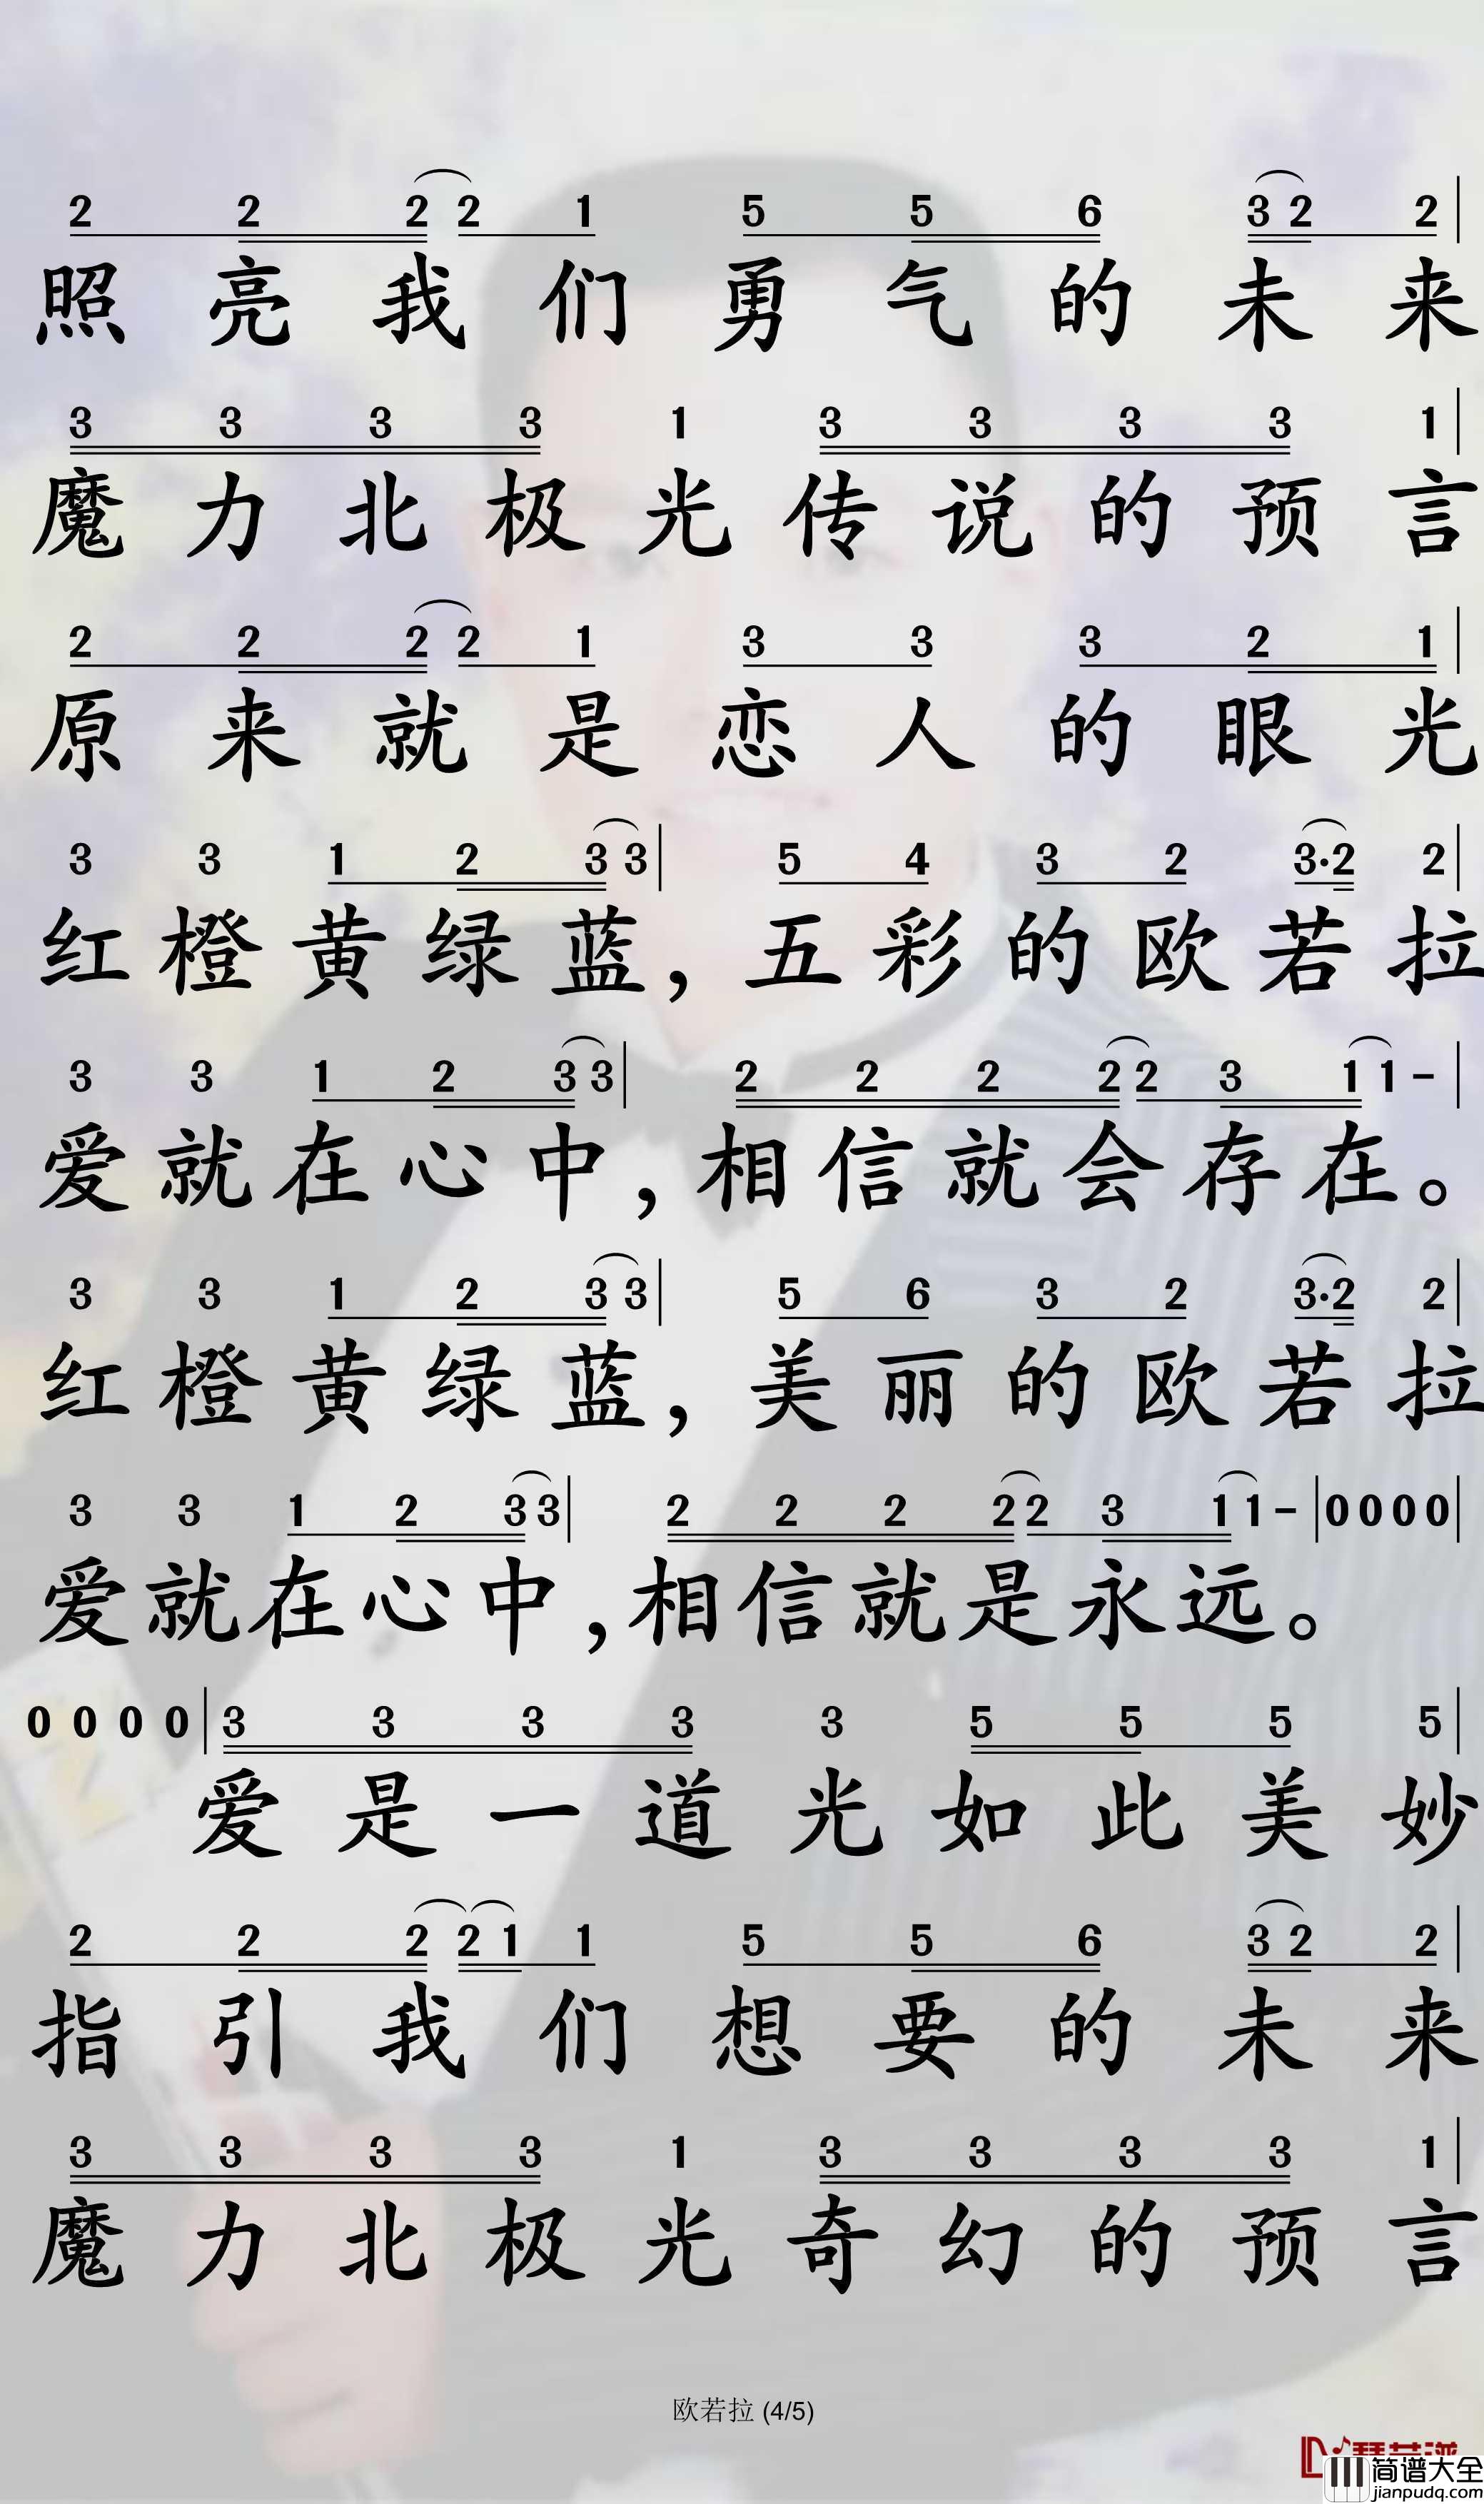 2 2 2 2 1 5 5 6 3 2 2
照亮我们勇气的未来
3 3 3 3 1 3 3 3 3 1
魔力北极光传说的预言
2 2 2 2 1 3 3 3 2 1
原来就是恋人的眼光
3 3 1 2 3 3 | 5 4 3 2 3·2 2
红橙黄绿蓝，五彩的欧若拉
3 3 1 2 3 3 | 2 2 2 2 2 3 1 1 -
爱就在心中，相信就会存在。
3 3 1 2 3 3 | 5 6 3 2 3·2 2
红橙黄绿蓝，美丽的欧若拉
3 3 1 2 3 3 | 2 2 2 2 2 3 1 1 - | 0 0 0 0
爱就在心中，相信就是永远。
0 0 0 0 | 3 3 3 3 3 5 5 5 5
爱是一道光如此美妙
2 2 2 2 1 1 5 5 6 3 2 2
指引我们想要的未来
3 3 3 3 1 3 3 3 3 1
魔力北极光奇幻的预言
欧若拉 (4/5)
简谱大全
jianpudq.com